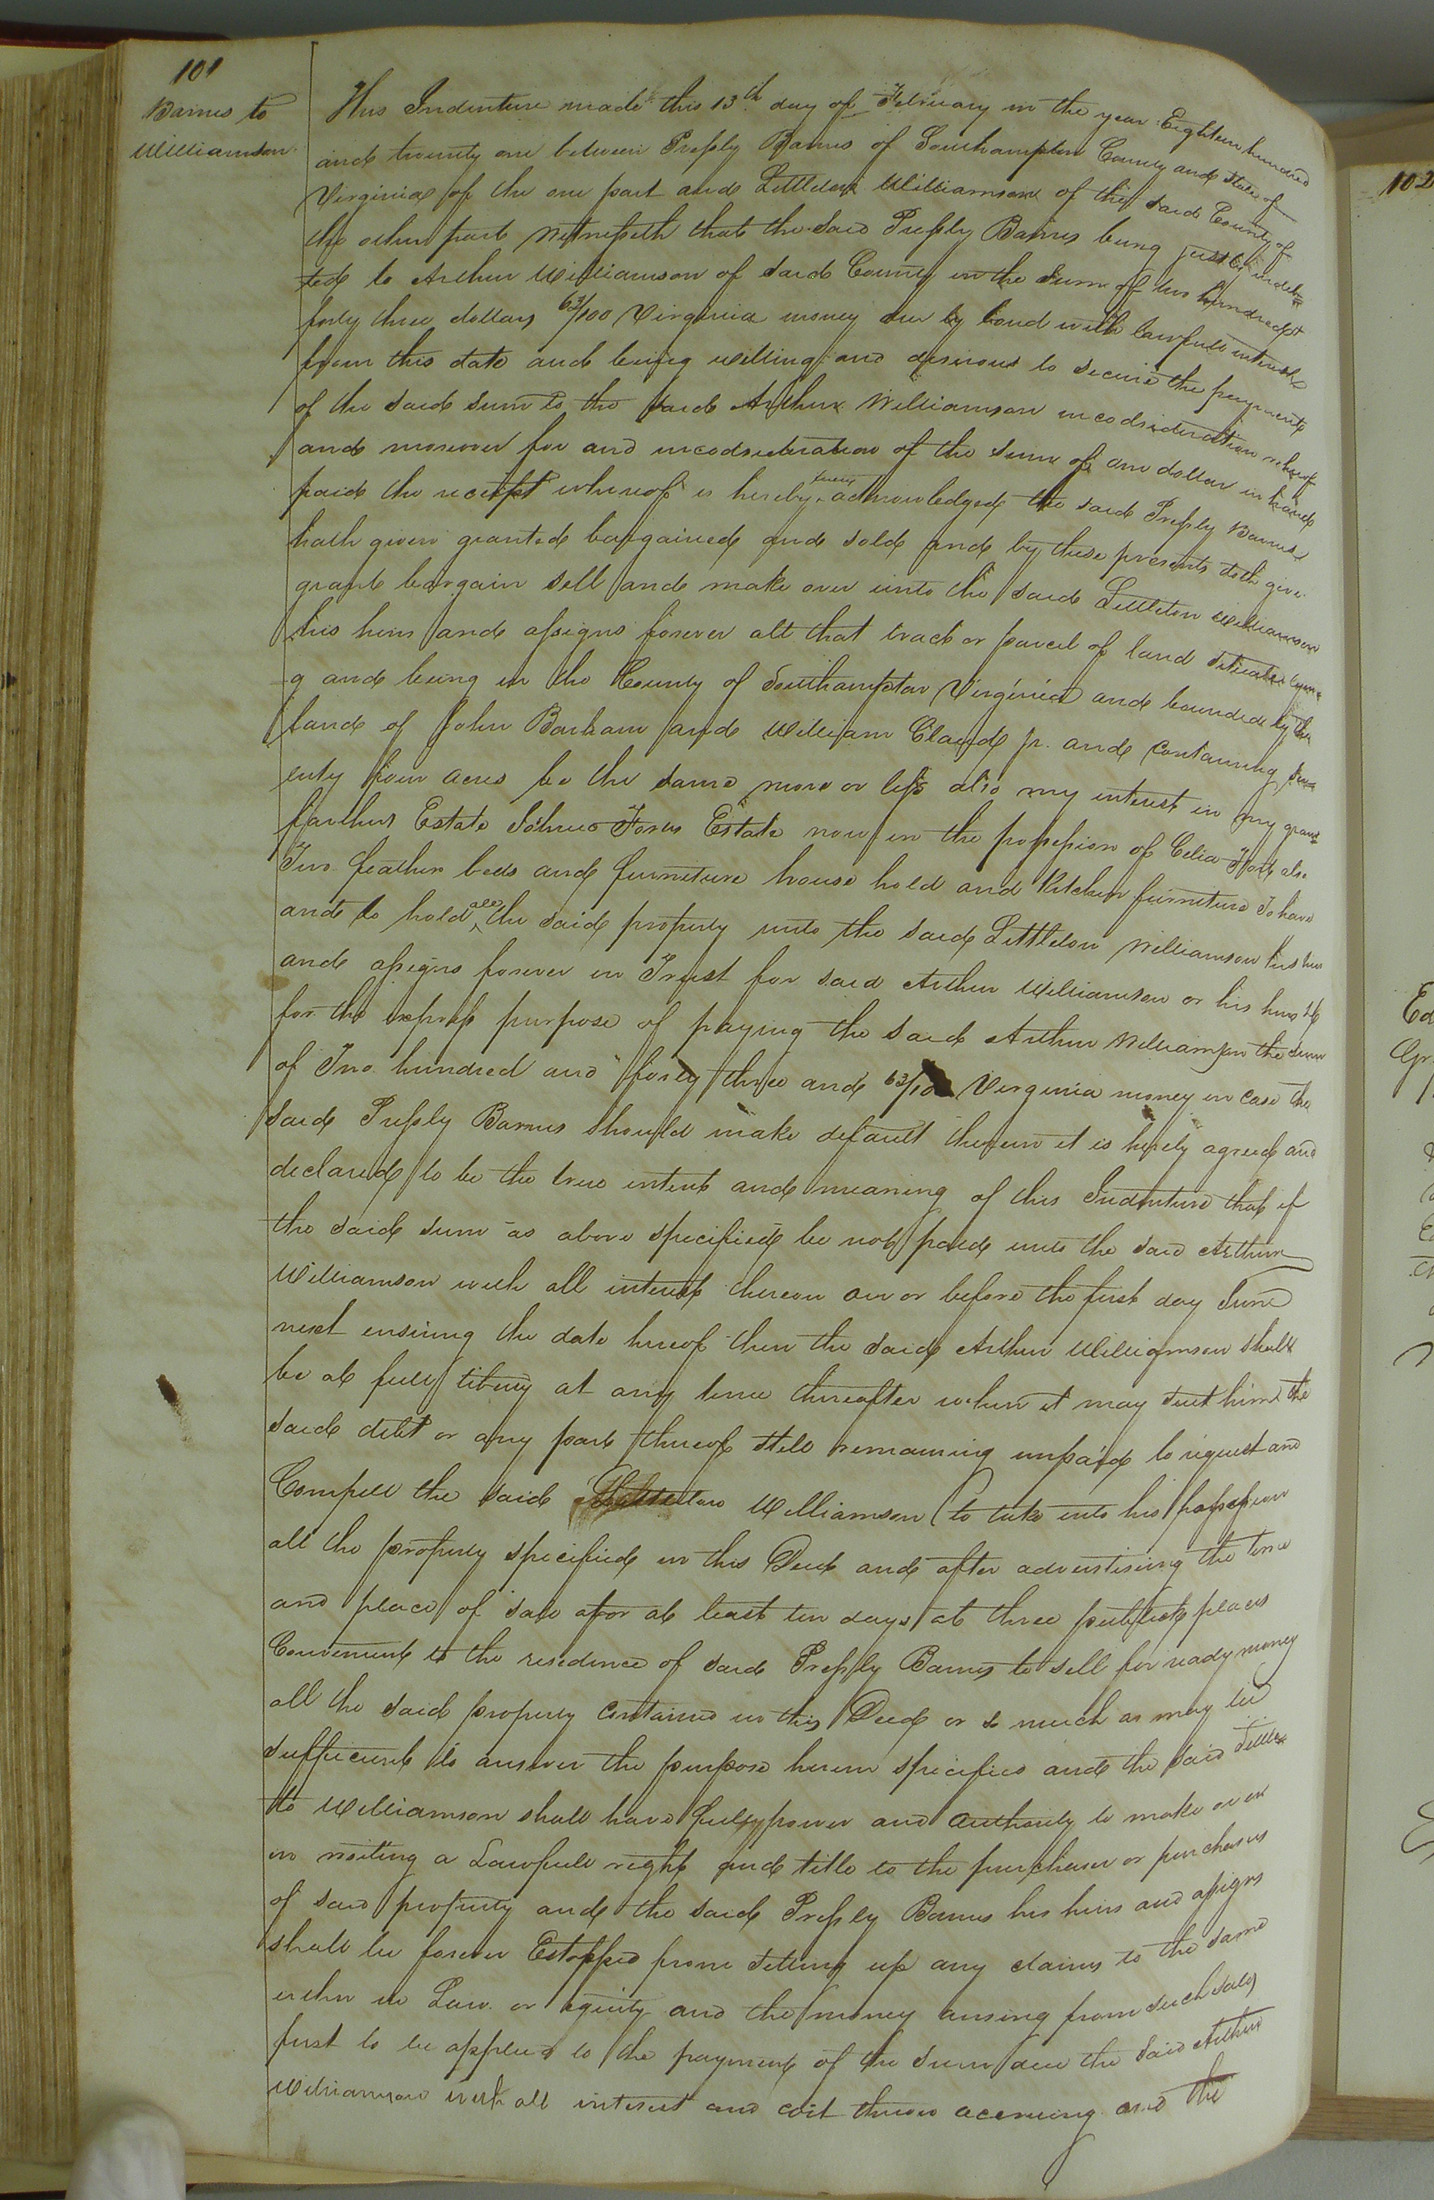 101
Barnes to
Williamson
This Indenture made this 13th day of February in the year Eighteen hundred
and twenty one between Pressly Barnes of Southampton County and State of
Virginia of the one part and Littleton Williamson of the said County of
the other part Witnesseth that the said Pressly Barnes being justly indeb=
ted to Arthur Williamson of said County in the sum of two hundred &
forty three dollars 63/100 Virginia money due by bond with lawfull interest
from this date and being willing and desirous to secure the payment
of the said sum to the said Arthur Williamson incodsideration whereof
and moreover for and incodsideration of the sum of one dollar in hand
paid the receipt whereof is hereby acknowledged the said Pressly Barnes
hath given granted bargained and sold and by these presents doth give
grant bargain sell and make over unto the said Littleton Williamson
his heirs and assigns forever all that tract or parcel of land situate lyin=
g and being in the County of Southampton Virginia and bounded by the
land of John Barham and William Claud jr. and containing seve
enty four acres be the same more or less also my interest in my grand
farthers Estate Estate now in the possession of Celia Fort also
Two feather beds and furniture house hold and Kitchen furniture To have
and to hold all the said property unto the said Littleton Williamson his heirs
and assigns forever in Trust for said Arthur Williamson or his heirs &c
for the express purpose of paying the said Arthur Williamson the sum
of Two hundred and forty three and 63/100 Virginia money in case the
said Pressly Barnes should make default therein it is hirely agreed and
declared to be the true intent and meaning of this Indenture that if
the said sum as above specified be not paid unto the said Arthur
Williamson with all interest thereon on or before the first day June
next ensuing the date hereof then the said Arthur Williamson shall
be at full liberty at any time thereafter when it may suit him the
said debt or any part thereof still remaining unpaid to request and
Compell the said Littleton Williamson to take into his possession
all the property specified in this Deed and after advertising the time
and place of sale for at least ten days at three publick places
Convenient to the residence of said Pressly Barnes to sell for ready money
all the said property contained in this Deed or so much as may be
sufficient to answer the purpose herein specified and the said Little=
to Williamson shall have full power and authority to make over
in writing a Lawfull right and title to the purchaser or purchasers
of said property and the said Pressly Barnes his heirs and assigns
shall be forever Estopped from setting up any claims to the same
either in Law or equity and the money arising from such sales
first to be applied to the payment of the sum due the said Arthur
Williamson with all interest and cost thereon accruing and the
102